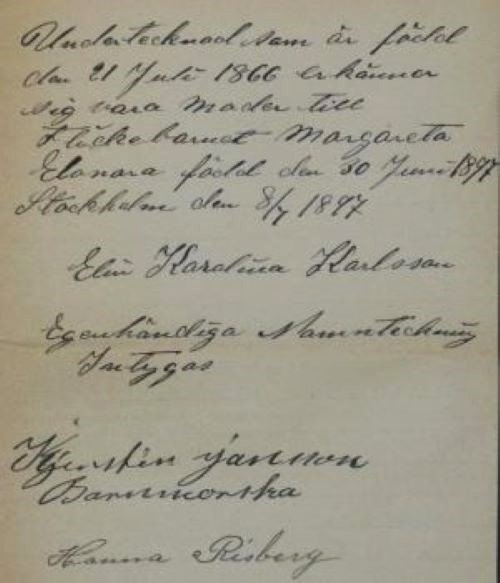 Undertecknad som är född
den 21 Juli 1866 erkänner
sig vara Moder till
Flickebarnet Margareta
Elonora född den 30 Juni 1897
Stockholm den 8/7 1897
Elin Karolina Karlsson
Egenhändiga Namnteckning
Intygas
Kjerstin Jansson
Barnmorska
Hanna Risberg